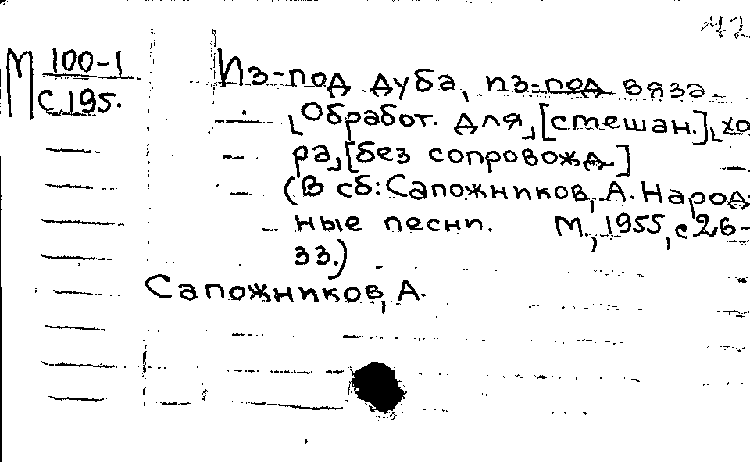 42
М 100-1
С 195.
Из-под дуба, из-под вяза.
[Обработ. для] [смешан.] [хо
ра] [без сопровожд.]
(В сб: Сапожников, А. Народ
ные песни. М., 1955, с 26-
33.)
Сапожников, А.